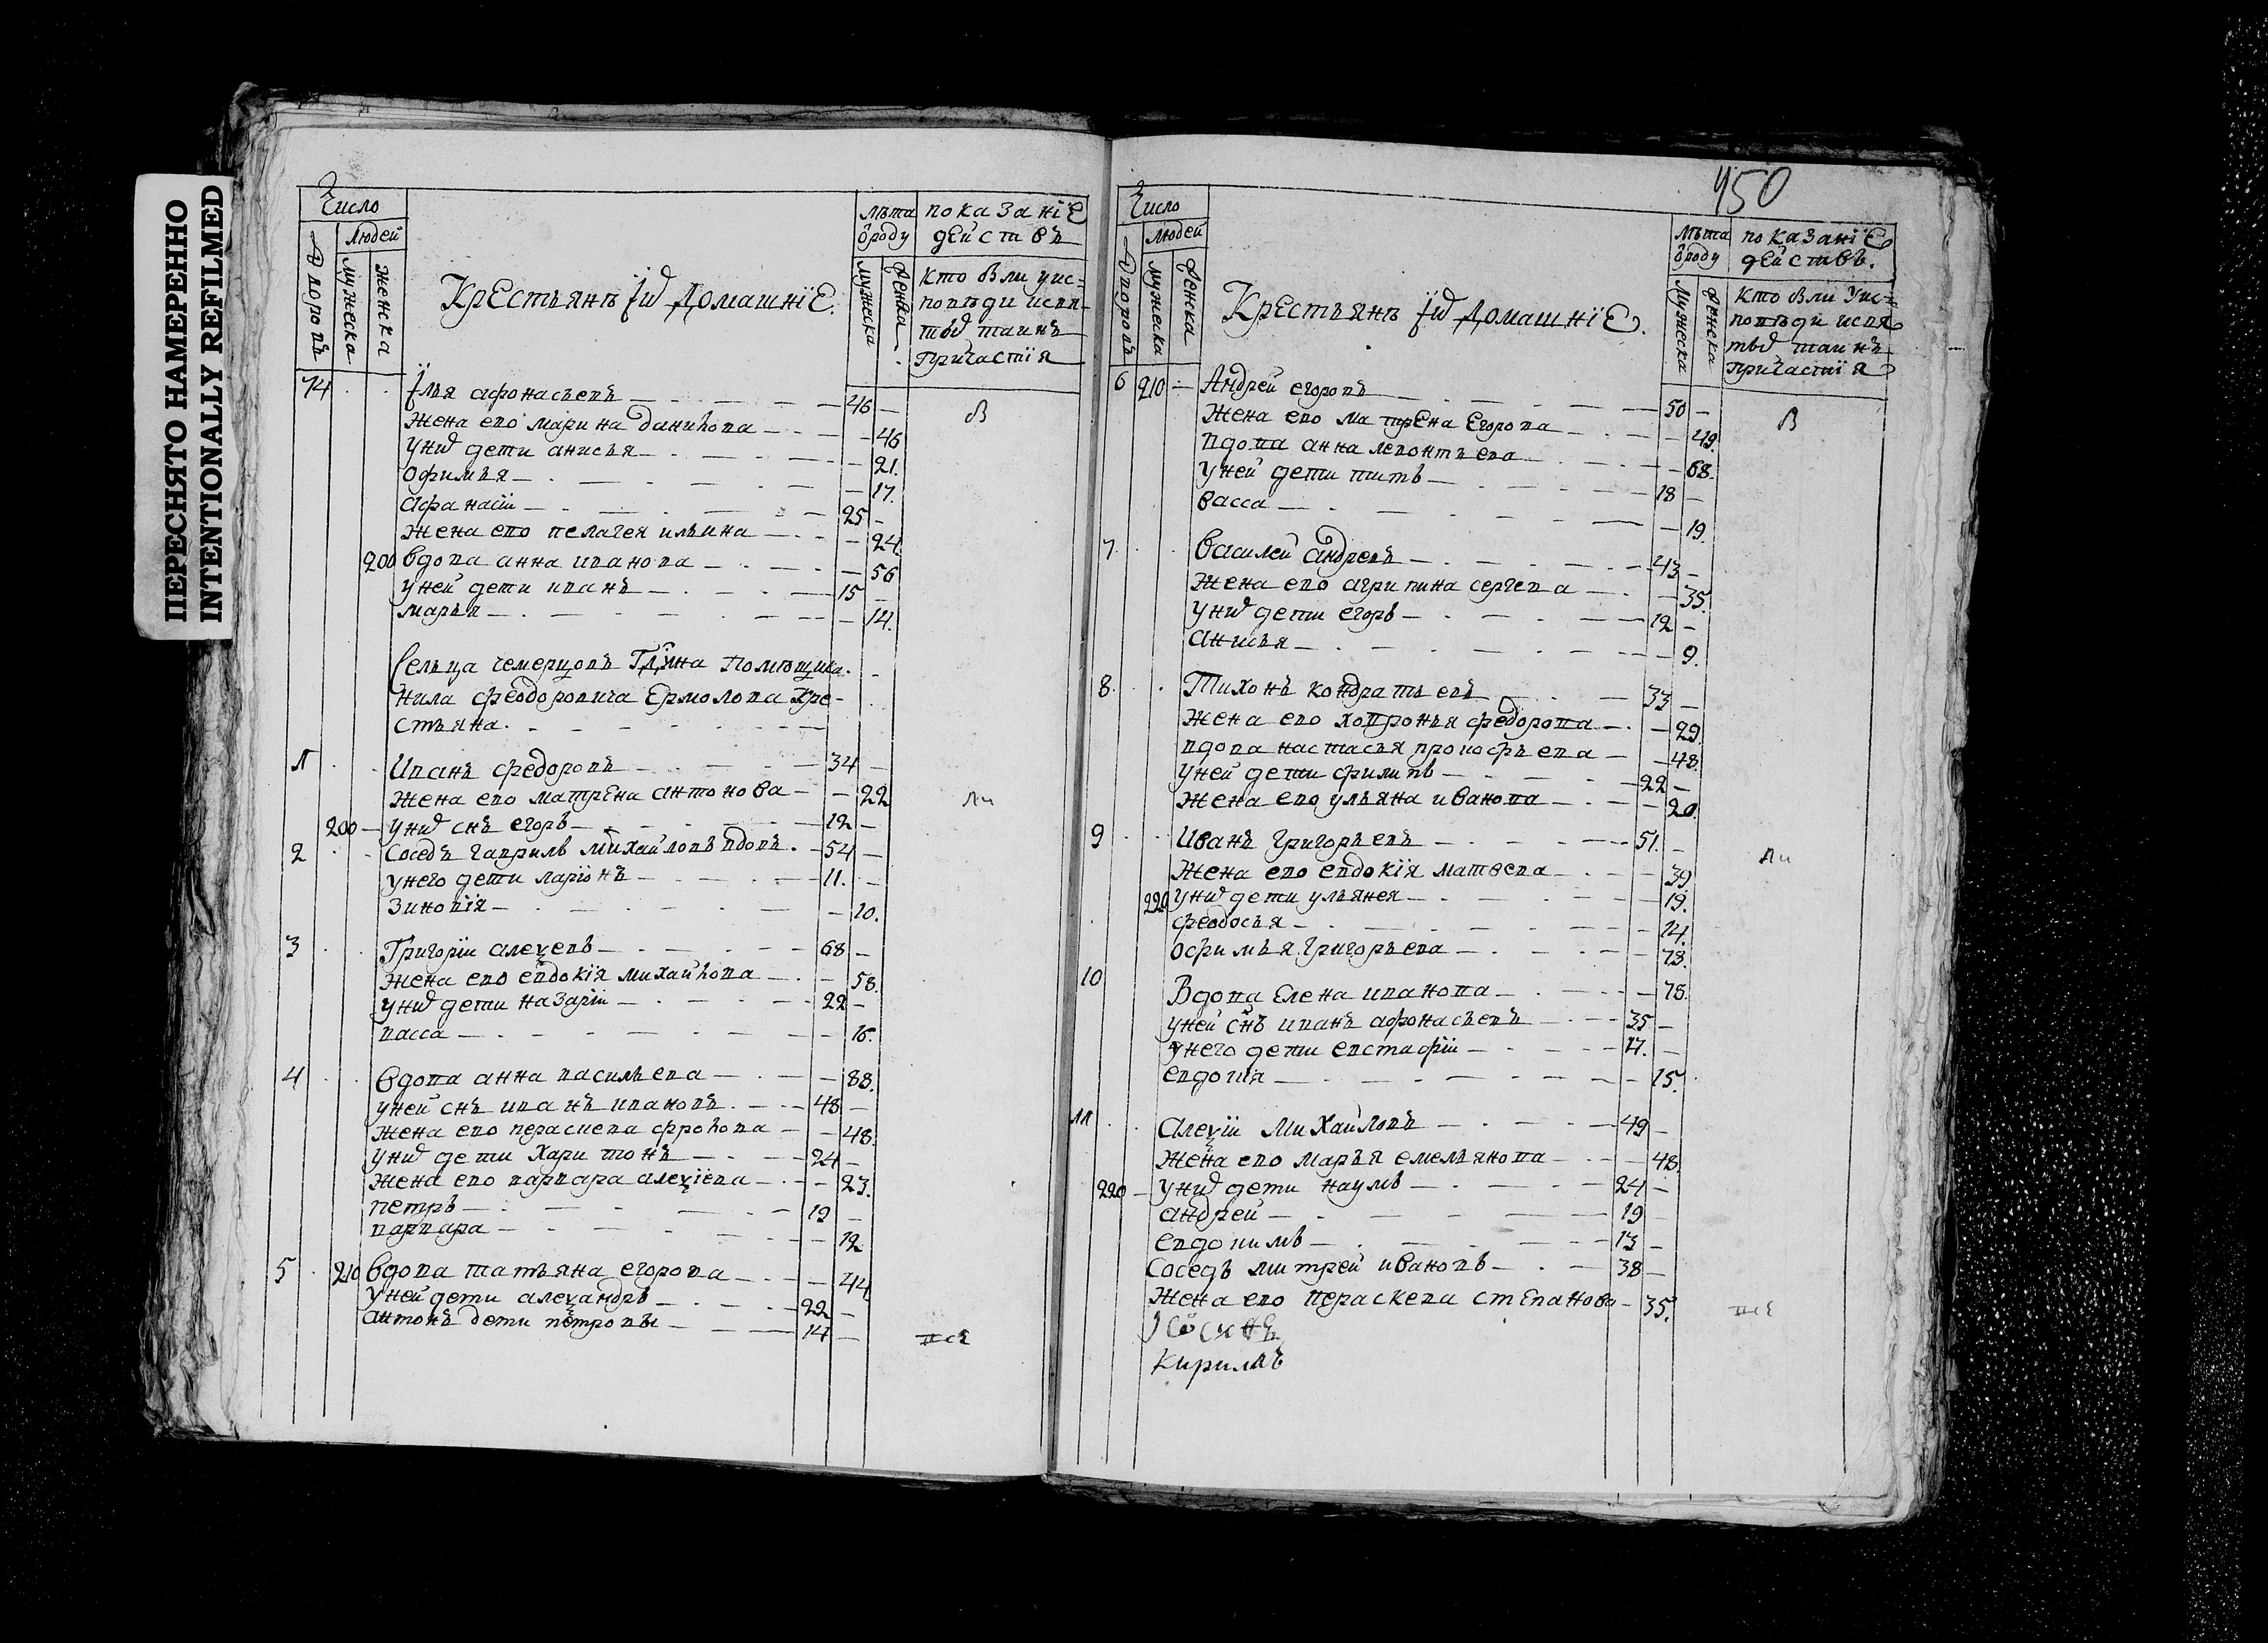 ПЕРЕСНЯТО НАМЕРЕННО
INTENTIONALLY REFILMED
Число
Людей
Дворовъ
мужеска
женска
Крестьянъ ихъ домашнïе.
лѣта
ѿроду
мужеска
женска
показанïе
действъ
Кто былиуис-
поведи исвя-
тыхъ таинъ
причастïя
14 Ïлья афонасьевъ 46
Жена его марина данилова 46
Унихъ дети анисья 21.
Офимья 17.
Афанасïи 25
Жена его пелагея ильина 24.
200 Вдова анна иванова 56
Уней дети иванъ 15
марья 14.
Сельца чемерцовъ Гдина Помѣщика
Нила Феодоровича Ермолова Кре-
стьяна.
1 Иванъ федоровъ 34
Жена его матрена антонова 22
200 Унихъ снъ егоръ 12
2 Соседъ гаврилъ Михайловъ вдовъ. 54
Унего дети ларïонъ 11.
Зиновïя 10.
3 Григорïи алеѯевъ 68
Жена его евдокïя михайлова 58.
Унихъ дети назарïи 22
васса 16.
4 Вдова анна васильева 88.
Уней снъ иванъ ивановъ 48
Жена его парасчева фролова 48.
Унихъ дети Харитонъ 24
Жена его варвара алеѯïева 23.
петръ 19
варвара 12
5 210 Вдова татьяна егорова 44
Уней дети алеѯандръ 22
антонъ дети петровы 14
в
ли
все
450
Число
Людей
Дворовъ
мужеска
женска
Крестьянъ ихъ домашнïе.
лѣта
ѿроду
мужеска
женска
показанïе
действъ.
Кто были Уис-
поведи исвя-
тыхъ таинъ
причастïя
6 210 Андрей егоровъ 50
Жена его матрена Егорова 49.
Вдова анна левонтьева 68.
Уней дети титъ 18
Васса 19.
7. Василей андревъ 43
Жена его агрипина сергева 35.
Унихъ дети егоръ 12
Анисья 9.
8. Тихонъ кондратьевъ 33
Жена его ховронья федорова 29.
вдова настасья прокофьева 48.
Уней дети филипъ 22
Жена его ульяна иванова 20.
9 Иванъ Григорьевъ 51.
Жена его евдокïя матвева 39.
220 Унихъ дети ульянея 19.
феодосья 14.
Офимья Григорьева 78.
10 Вдова Елена иванова 78.
Уней снъ иванъ афонасьевъ 35
Унего дети евстафïи 17.
евдокïя 15.
11 Алеѯïи Михайловъ 49
Жена его марья емельянова 48.
220 Унихъ дети наумъ 24
Андрей 19
евдокимъ 13
Соседъ митрей ивановъ 38
Жена его параскева степанова 35.
Кирилъ
в
ли
все